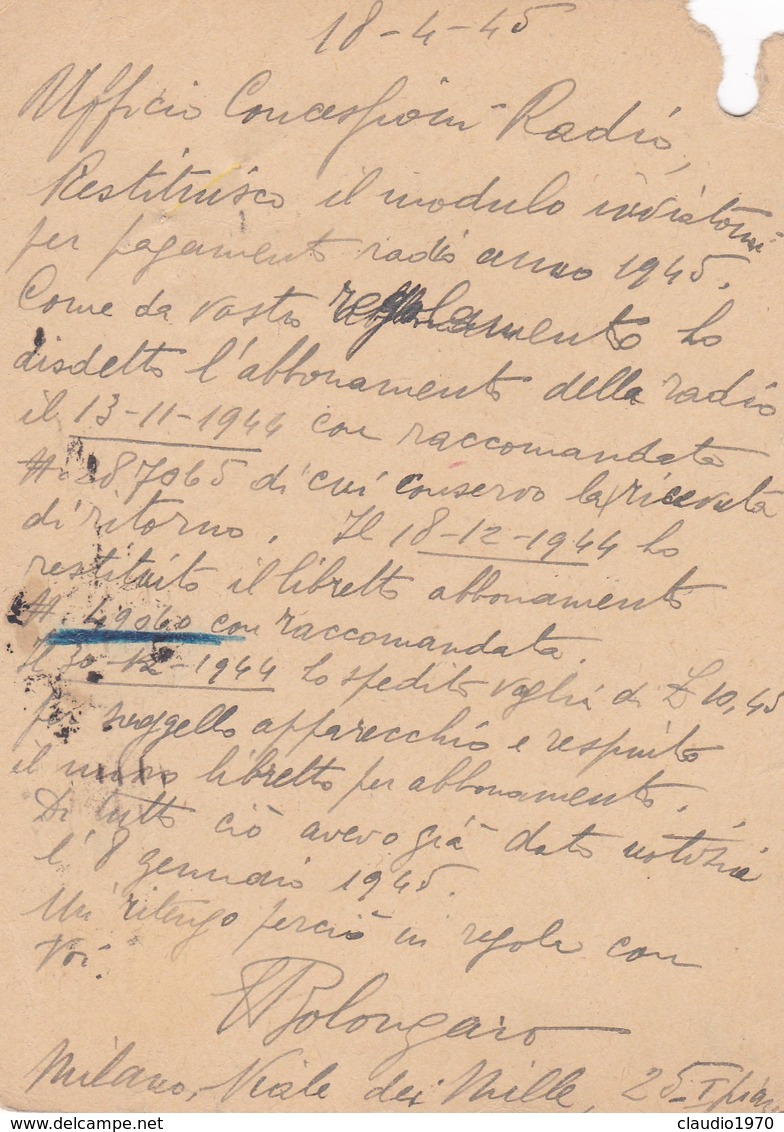 18-4-45
Ufficio Concessioni Radio,
Restituisco il modulo inviatomi
per pagamento radio anno 1945.
Come da vostro regolamento ho
disdetto l'abbonamento della radio
il 13-11-1944 con raccomandata
N. 287065 di cui conservo la ricevuta
di ritorno. Il 18-12-1944 ho
restituito il libretto abbonamento
N. 49060 con raccomandata
Il 30-12-1944 ho spedito vaglia di £ 10,45
per suggello apparecchio e respinto
il nuovo libretto per abbonamento.
Di tutto ciò avevo già dato notizia
l'8 gennaio 1945.
Mi ritengo perciò in regola con
Voi.
Bolongaro
Milano, Viale dei Mille, 25 - I pian
claudio1970